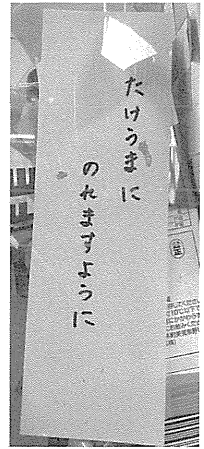 たけうまに
のれますように